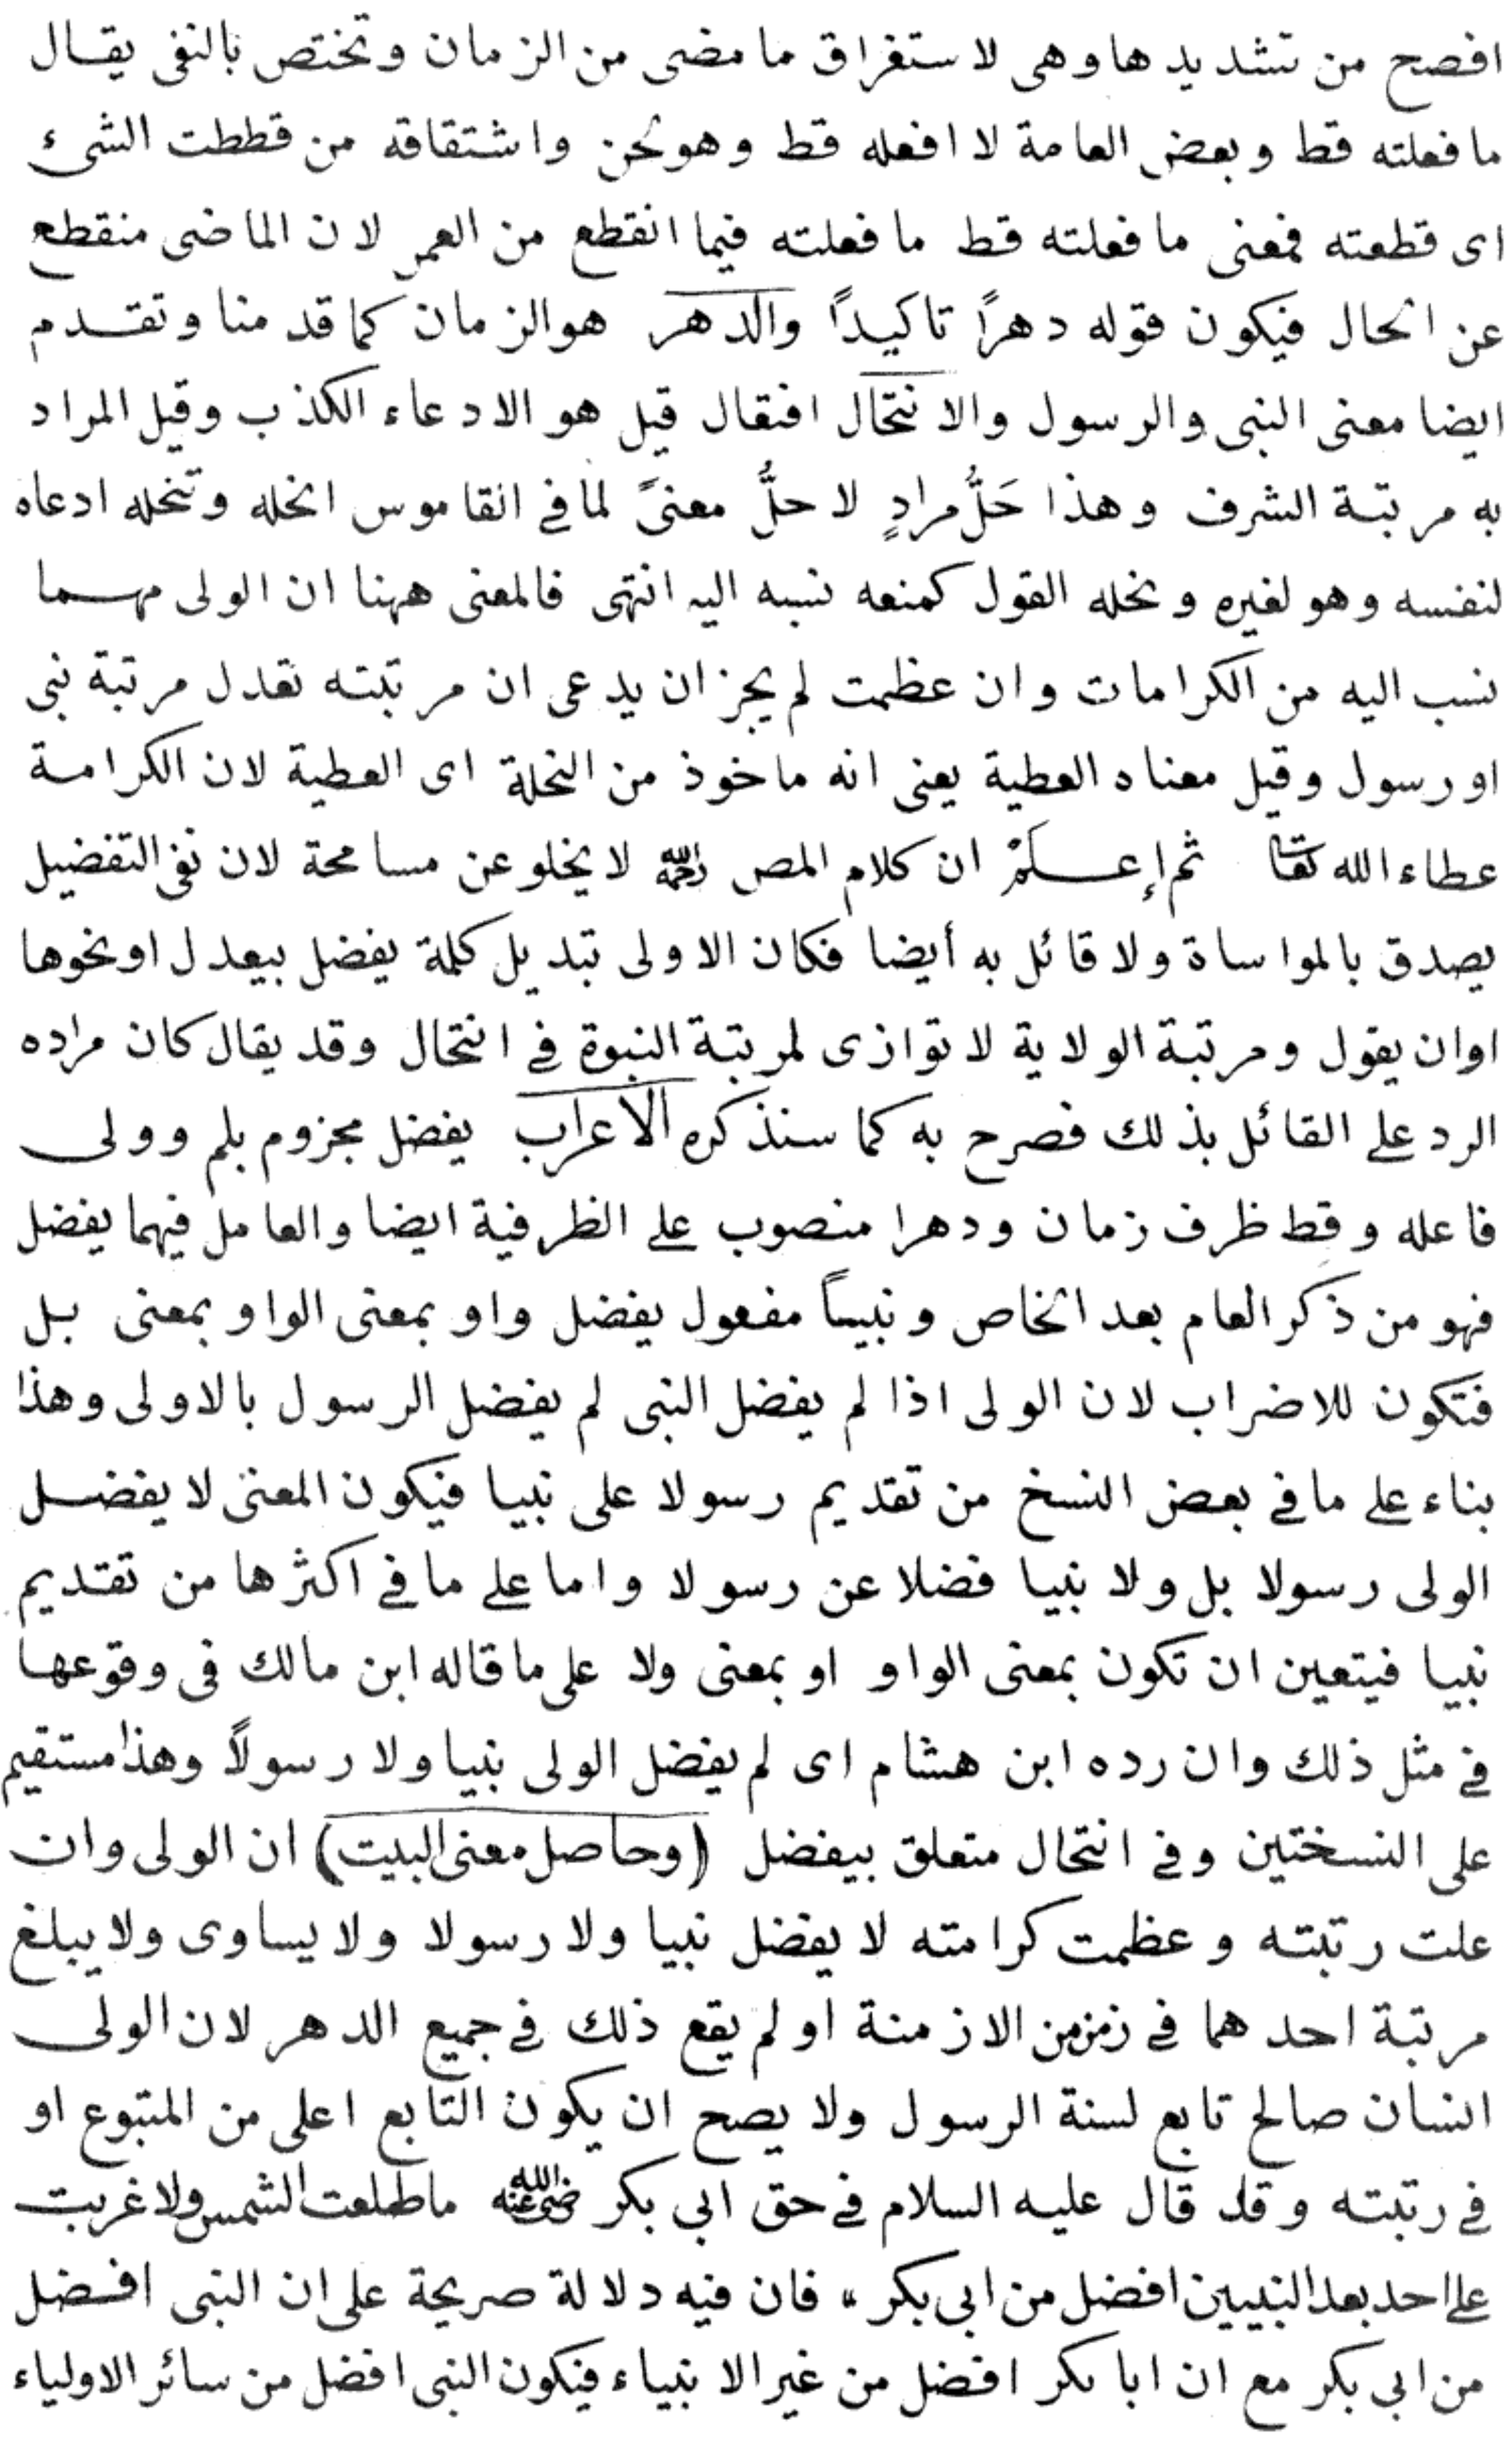 افصح من تشديدها وهى لاستغراق ما مضى من الزمان وتختص بالنفى يقال
ما فعلته قط وبعض العامة لا افعله قط وهو لحن واشتقاقه من قططت الشئ
اى قطعته فمعنى ما فعلته قط ما فعلته فيما انقطع من العمر لان الماضى منقطع
عن الحال فيكون قوله دهراً تاكيداً والدهر هو الزمان كما قدمنا وتقدم
ايضا معنى النبى والرسول والانتحال افتعال قيل هو الادعاء الكذب وقيل المراد
به مرتبة الشرف وهذا حَلُّ مرادٍ لا حلُّ معنىً لما فى القاموس انتحله وتنحله ادعاه
لنفسه وهو لغيره ونحله القول كمنعه نسبه اليه انتهى فالمعنى ههنا ان الولى مهما
نسب اليه من الكرامات وان عظمت لم يجز ان يدعى ان مرتبته تعدل مرتبة نبى
او رسول وقيل معناه العطية يعنى انه ماخوذ من النحلة اى العطية لان الكرامة
عطاء الله تعا ثم إعلَمْ ان كلام المص رحمه الله لا يخلو عن مسامحة لان نفى التفضيل
يصدق بالمواساة ولا قائل به أيضا فكان الاولى تبديل كلمة يفضل بيعدل او نحوها
اوان يقول ومرتبة الولاية لا توازى لمرتبة النبوة فى انتحال وقد يقال كان مراده
الرد على القائل بذلك فصرح به كما سنذكره الاعراب يفضل مجزوم بلم وولى
فاعله وقط ظرف زمان ودهرا منصوب على الظرفية ايضا والعامل فيهما يفضل
فهو من ذكر العام بعد الخاص ونبياً مفعول يفضل واو بمعنى الواو بمعنى بل
فتكون للاضراب لان الولى اذا لم يفضل النبى لم يفضل الرسول بالاولى وهذا
بناء على ما فى بعض النسخ من تقديم رسولا على نبيا فيكون المعنى لا يفضل
الولى رسولا بل ولا نبيا فضلا عن رسولا واما على ما فى اكثرها من تقديم
نبيا فيتعين ان تكون بمعنى الواو او بمعنى ولا على ما قاله ابن مالك فى وقوعها
فى مثل ذلك وان رده ابن هشام اى لم يفضل الولى نبيا ولا رسولاً وهذا مستقيم
على النسختين وفى انتحال متعلق بيفضل (وحاصل معنى البيت) ان الولى وان
علت رتبته وعظمت كرامته لا يفضل نبيا ولا رسولا ولا يساوى ولا يبلغ
مرتبة احدهما فى زمن من الازمنة او لم يقع ذلك فى جميع الدهر لان الولى
انسان صالح تابع لسنة الرسول ولا يصح ان يكون التابع اعلى من المتبوع او
فى رتبته وقد قال عليه السلام فى حق ابى بكر رضى الله عنه ما طلعت الشمس ولا غربت
على احد بعد النبيين افضل من ابى بكر ، فان فيه دلالة صريحة على ان النبى افضل
من ابى بكر مع ان ابا بكر افضل من غير الانبياء فيكون النبى افضل من سائر الاولياء